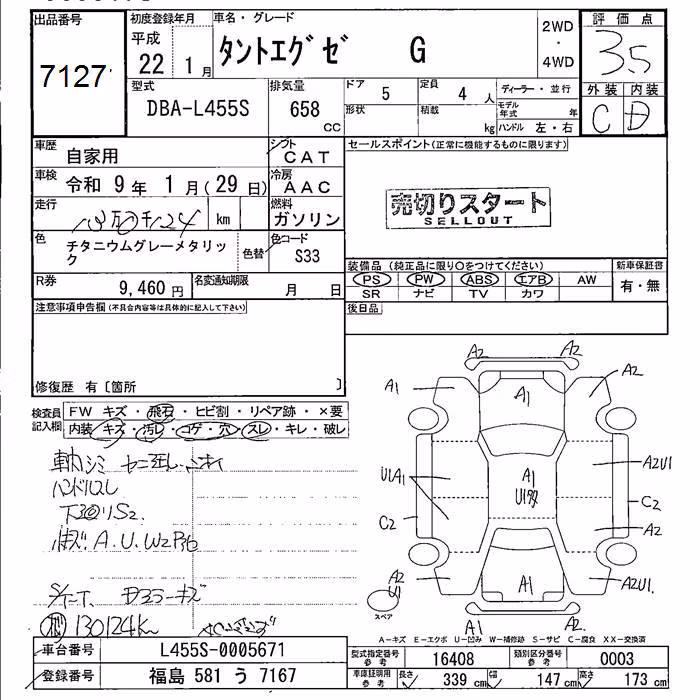 出品番号
7127
初度登録年月
平成
22 1月
車名・グレード
タントエグゼ G
2WD
・
4WD
評価点
3.5
外装 内装
C D
型式
DBA-L455S
排気量
658
CC
ドア 5
定員 4 人
形状
積載 kg
ディーラー・並行
モデル年式 年
ハンドル 左・右
車歴
自家用
シフト
CAT
セールスポイント(正常に機能するものに限ります)
車検 令和 9年 1月(29日)
冷房
AAC
売切りスタート
SELLOUT
走行
km
燃料
ガソリン
色
チタニウムグレーメタリック
色替
色コード
S33
装備品 (純正品に限り○をつけてください)
新車保証書
PS PW ABS エアB AW
SR ナビ TV カワ
有・無
R券
9,460 円
名変通知期限
月 日
後日品
注意事項申告欄(不具合内容等は具体的に記入して下さい)
修復歴 有〔箇所 〕
検査員記入欄
FW キズ・飛石・ヒビ割・リペア跡・×要
内装・キズ・汚レ・コゲ・穴・スレ・キレ・破レ
ハンドルスレ
A.U.W2
130124Km
A2 A2
A1 A1 A2
U1A1 A1 A2U1
C2 C2
A2
A2
U1 A1 A2U1
A1 A2
スペア
A-キズ E-エクボ U-凹み W-補修跡 S-サビ C-腐食 XX-交換済
車台番号 L455S-0005671
登録番号 福島 581 う 7167
型式指定番号 参考 16408
類別区分番号 参考 0003
車庫証明用 参考 長さ 339 cm 幅 147 cm 高さ 173 cm